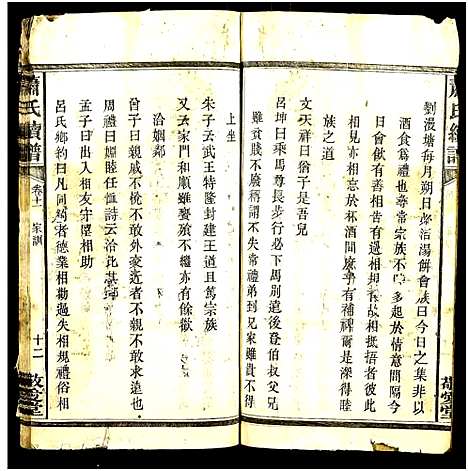 蕭氏續譜
劉漫塘每月朔日必治湯餅會族曰今日之集非以
酒食爲禮也尋常宗族不睦多起於情意間隔今
相見亦日相與於杯酒之間庶幾有補裨爾是深得睦
族之道
文天祥曰猶子是吾兒
呂坤曰乘馬尊長步行必下馬別遠後登伯叔父兄
雖貧賤不廢稱謂不失常禮弟到兄家雖貴不可
上坐
朱子云武王特隆封建王道且篤宗族
又云一家和順雖饔飱不繼亦有餘歡
洽姻鄰
曾子曰親戚不悅不敢外交近者不親不敢求遠也
周禮曰婣睦任恤詩云洽比其鄰
孟子曰出入相友守望相助
呂氏鄉約曰凡同約者德業相勸過失相規禮俗相
蕭氏續譜
卷十一
家訓
十二
敬愛堂
敬愛堂